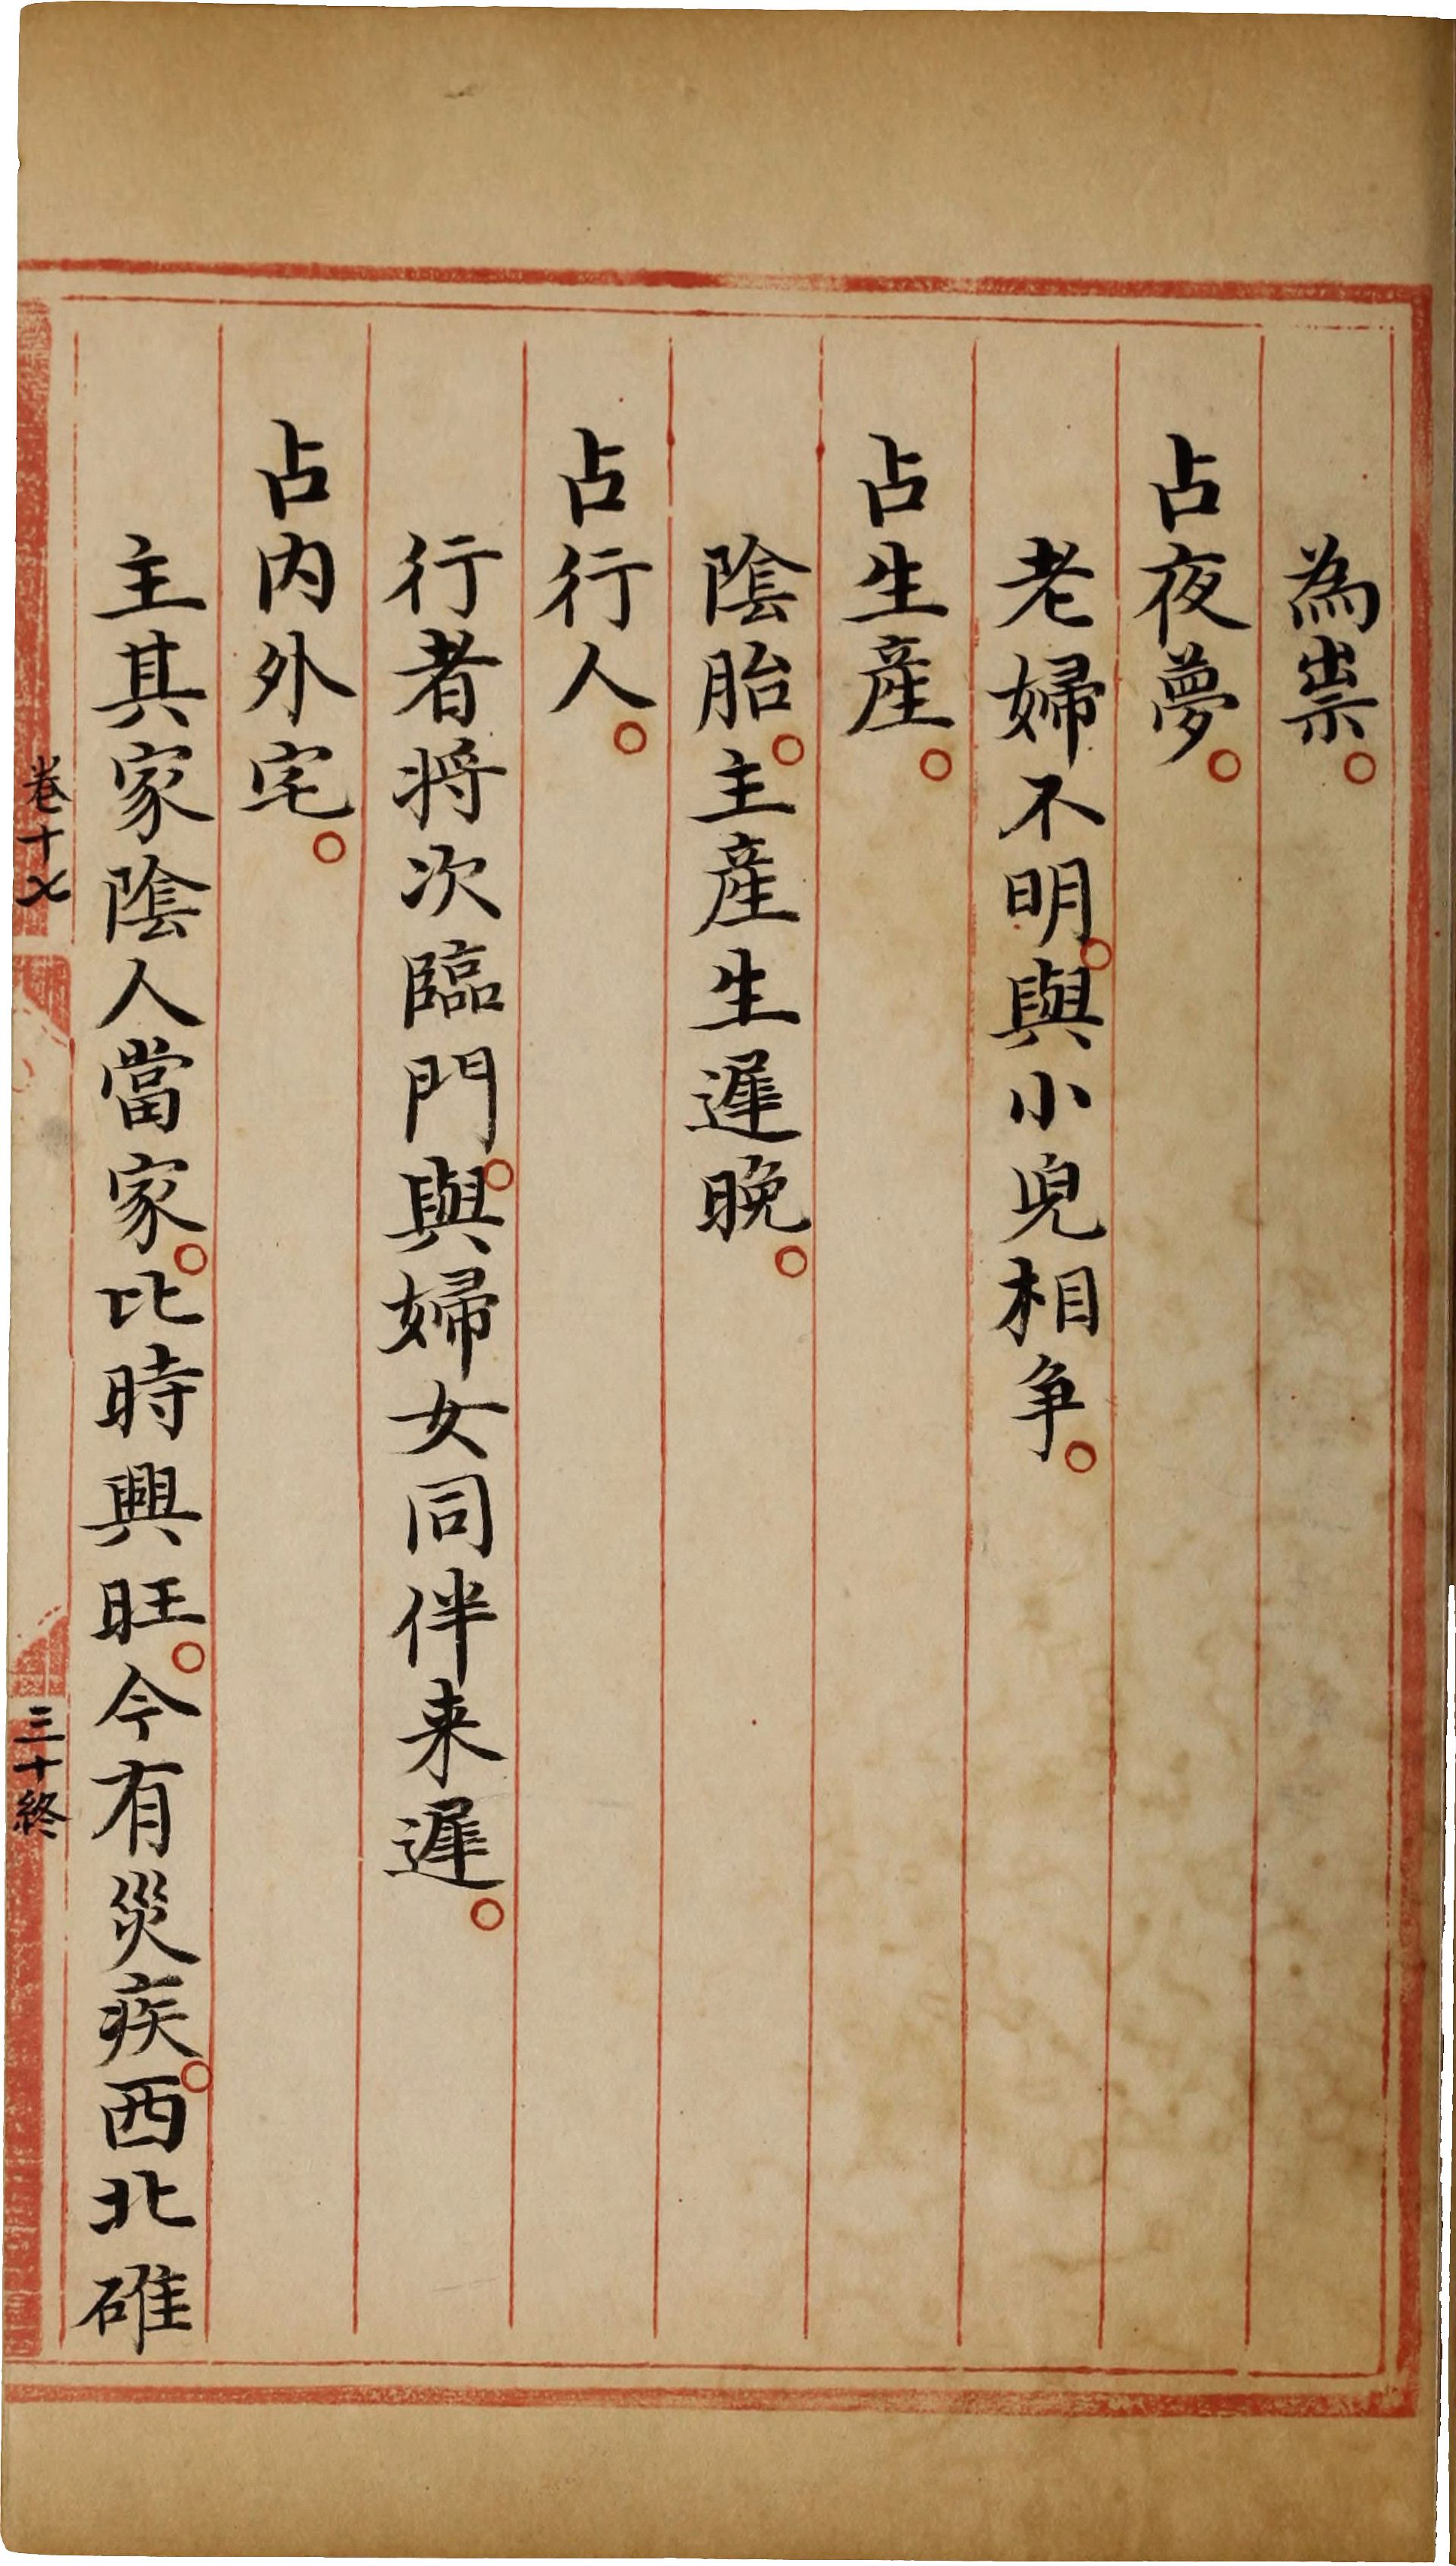 為祟。
占夜夢。
老婦不明。與小兒相争。
占生產。
陰胎。主產生遲晚。
占行人。
行者将次臨門。與婦女同伴来遲。
占内外宅。
主其家陰人當家。比時興旺。今有災疾。西北碓
卷十七
三十終